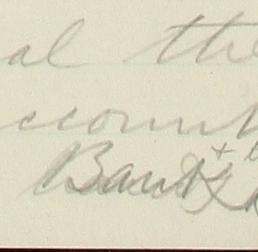 al the
ccount
Bank